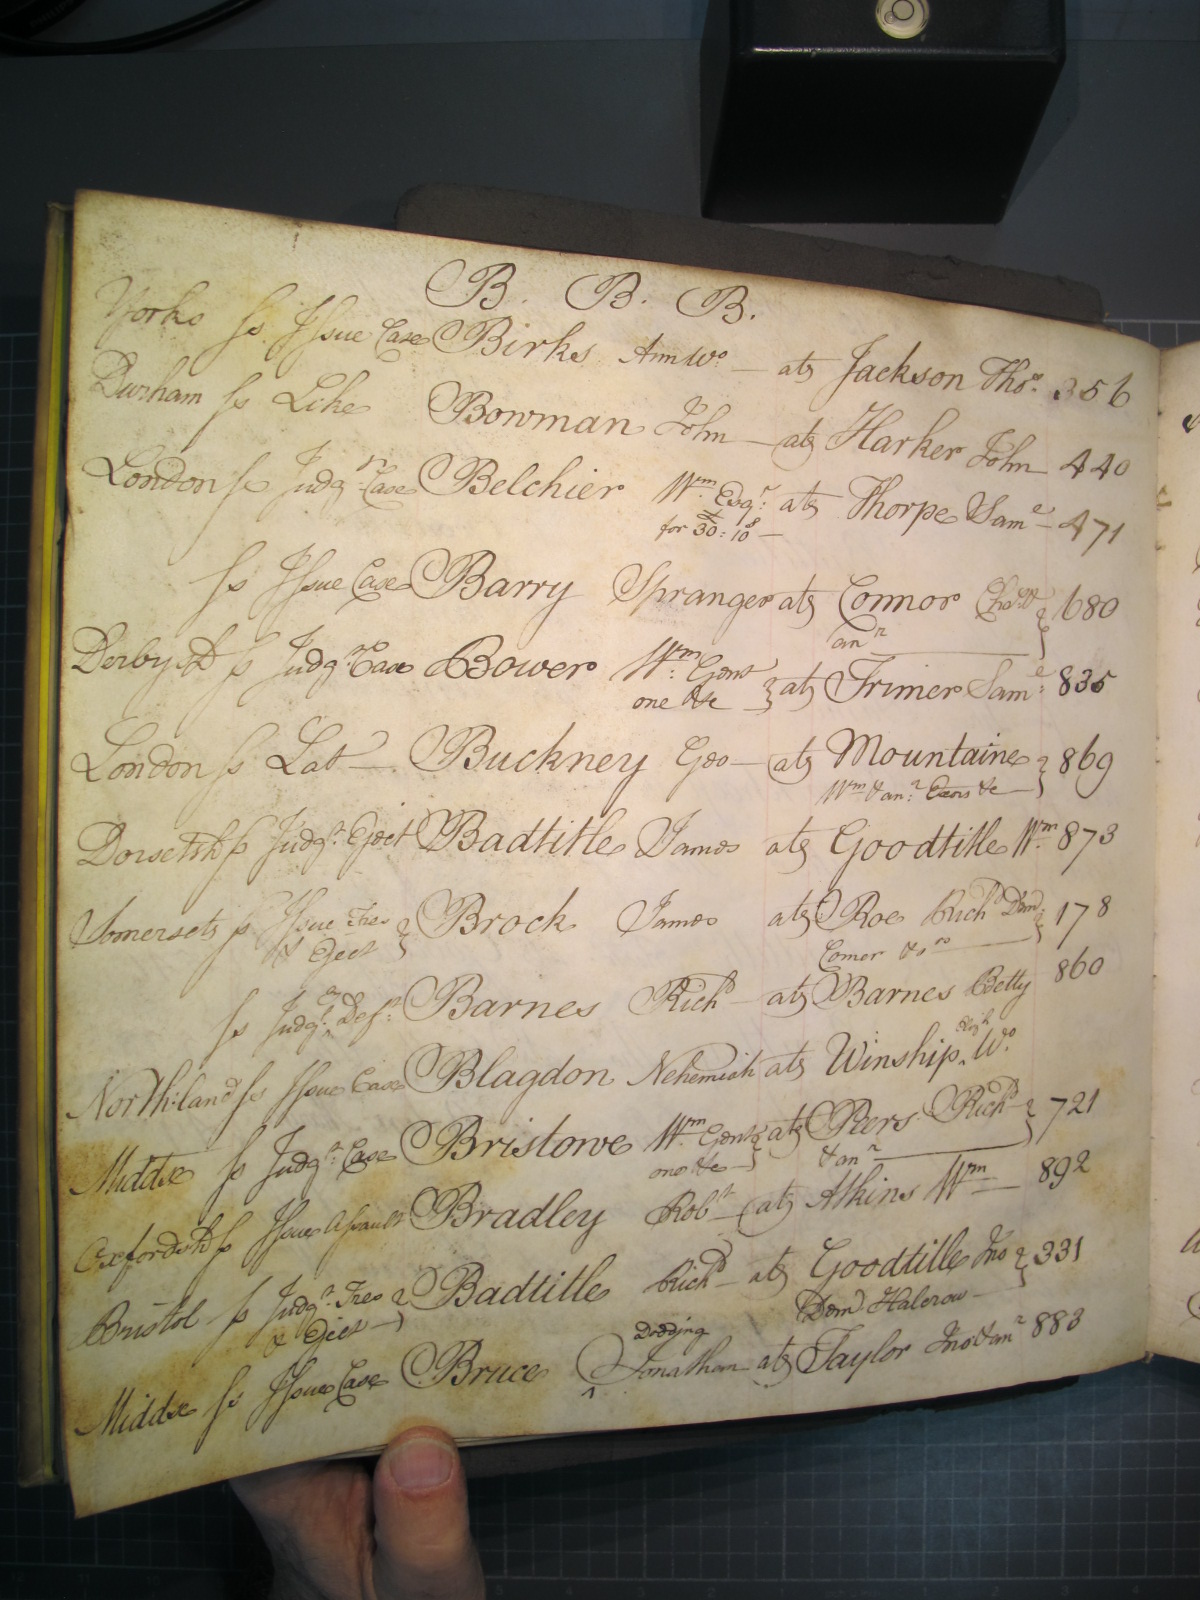 B. B. B.
Yorks ss Issue Case Birks Ann Wo. — ats Jackson Thos. 356
Durham ss Like Bowman John — ats Harker John 440
London ss Judgt. Case Belchier Wm. Esqr. ats Thorpe Saml — 471
for 30:10s —
ss Issue Case Barry Spranger ats Connor Chas 680
anr
Derbysh ss Judgt. Case Bower Wm. Gent ats Trimer Saml: 835
one &c
London ss Lat — Buckney Geo — ats Mountaine 869
Wm & anr. Exors &c —
Dorsetsh ss Judgt. Eject Badtitle James ats Goodtitle Wm 873
Somersets ss Issue Tres Brock James ats Roe Richd Dem 178
& Eject Comer & ors
ss Judgt. Deft. Barnes Richd — ats Barnes Betty 860
Northland ss Issue Case Blagdon Nehemiah ats Winship Wo.
Middx ss Judgt. Case Bristowe Wm Gent ats Peers Richd 721
one &c — & anr
Oxfordsh ss Issue Assault Bradley Robt — ats Atkins Wm — 892
Bristol ss Judgt. Tres Badtitle Richd — ats Goodtitle Jno 331
& Eject — Dem Halerow —
Dodding
Middx ss Issue Case Bruce ^ Jonathan ats Taylor Jno & anr 883